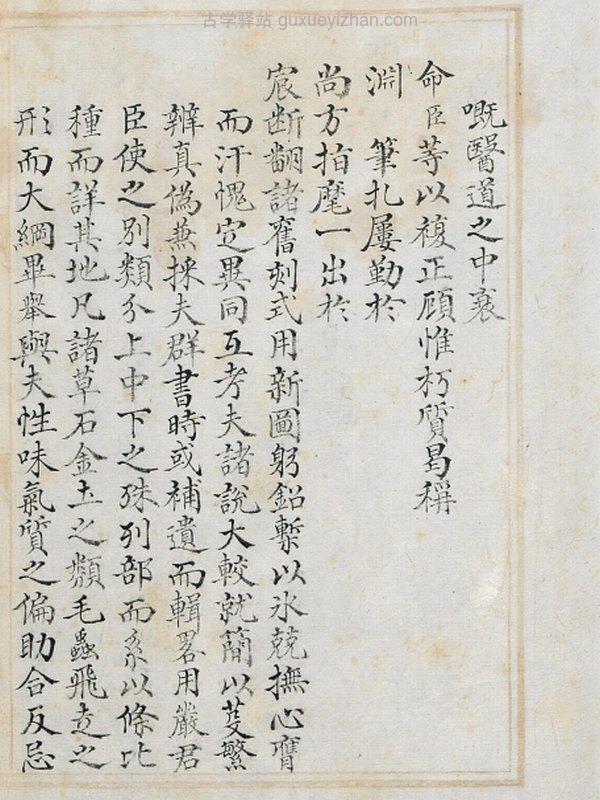 古学驿站 guxueyizhan.com
嘅醫道之中衰
命臣等以複正顧惟朽質曷稱
淵 筆札屢勤於
尚方拍麾一出於
宸断翻諸舊刻式用新圖躬鉛槧以氷兢撫心膺
而汗愧定異同互考夫諸說大較就簡以芟繁
辨真偽兼採夫群書時或補遺而輯畧用嚴君
臣使之别類分上中下之殊列部而系以條比
種而詳其地凡諸草石金土之類毛蟲飛走之
形而大綱畢舉與夫性味氣質之偏助合反忌